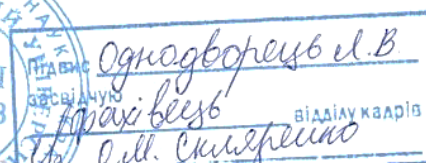 НАУК
Підпис Однодворець Л.В.
засвідчую
фахівець відділу кадрів
О.М. Скляренко